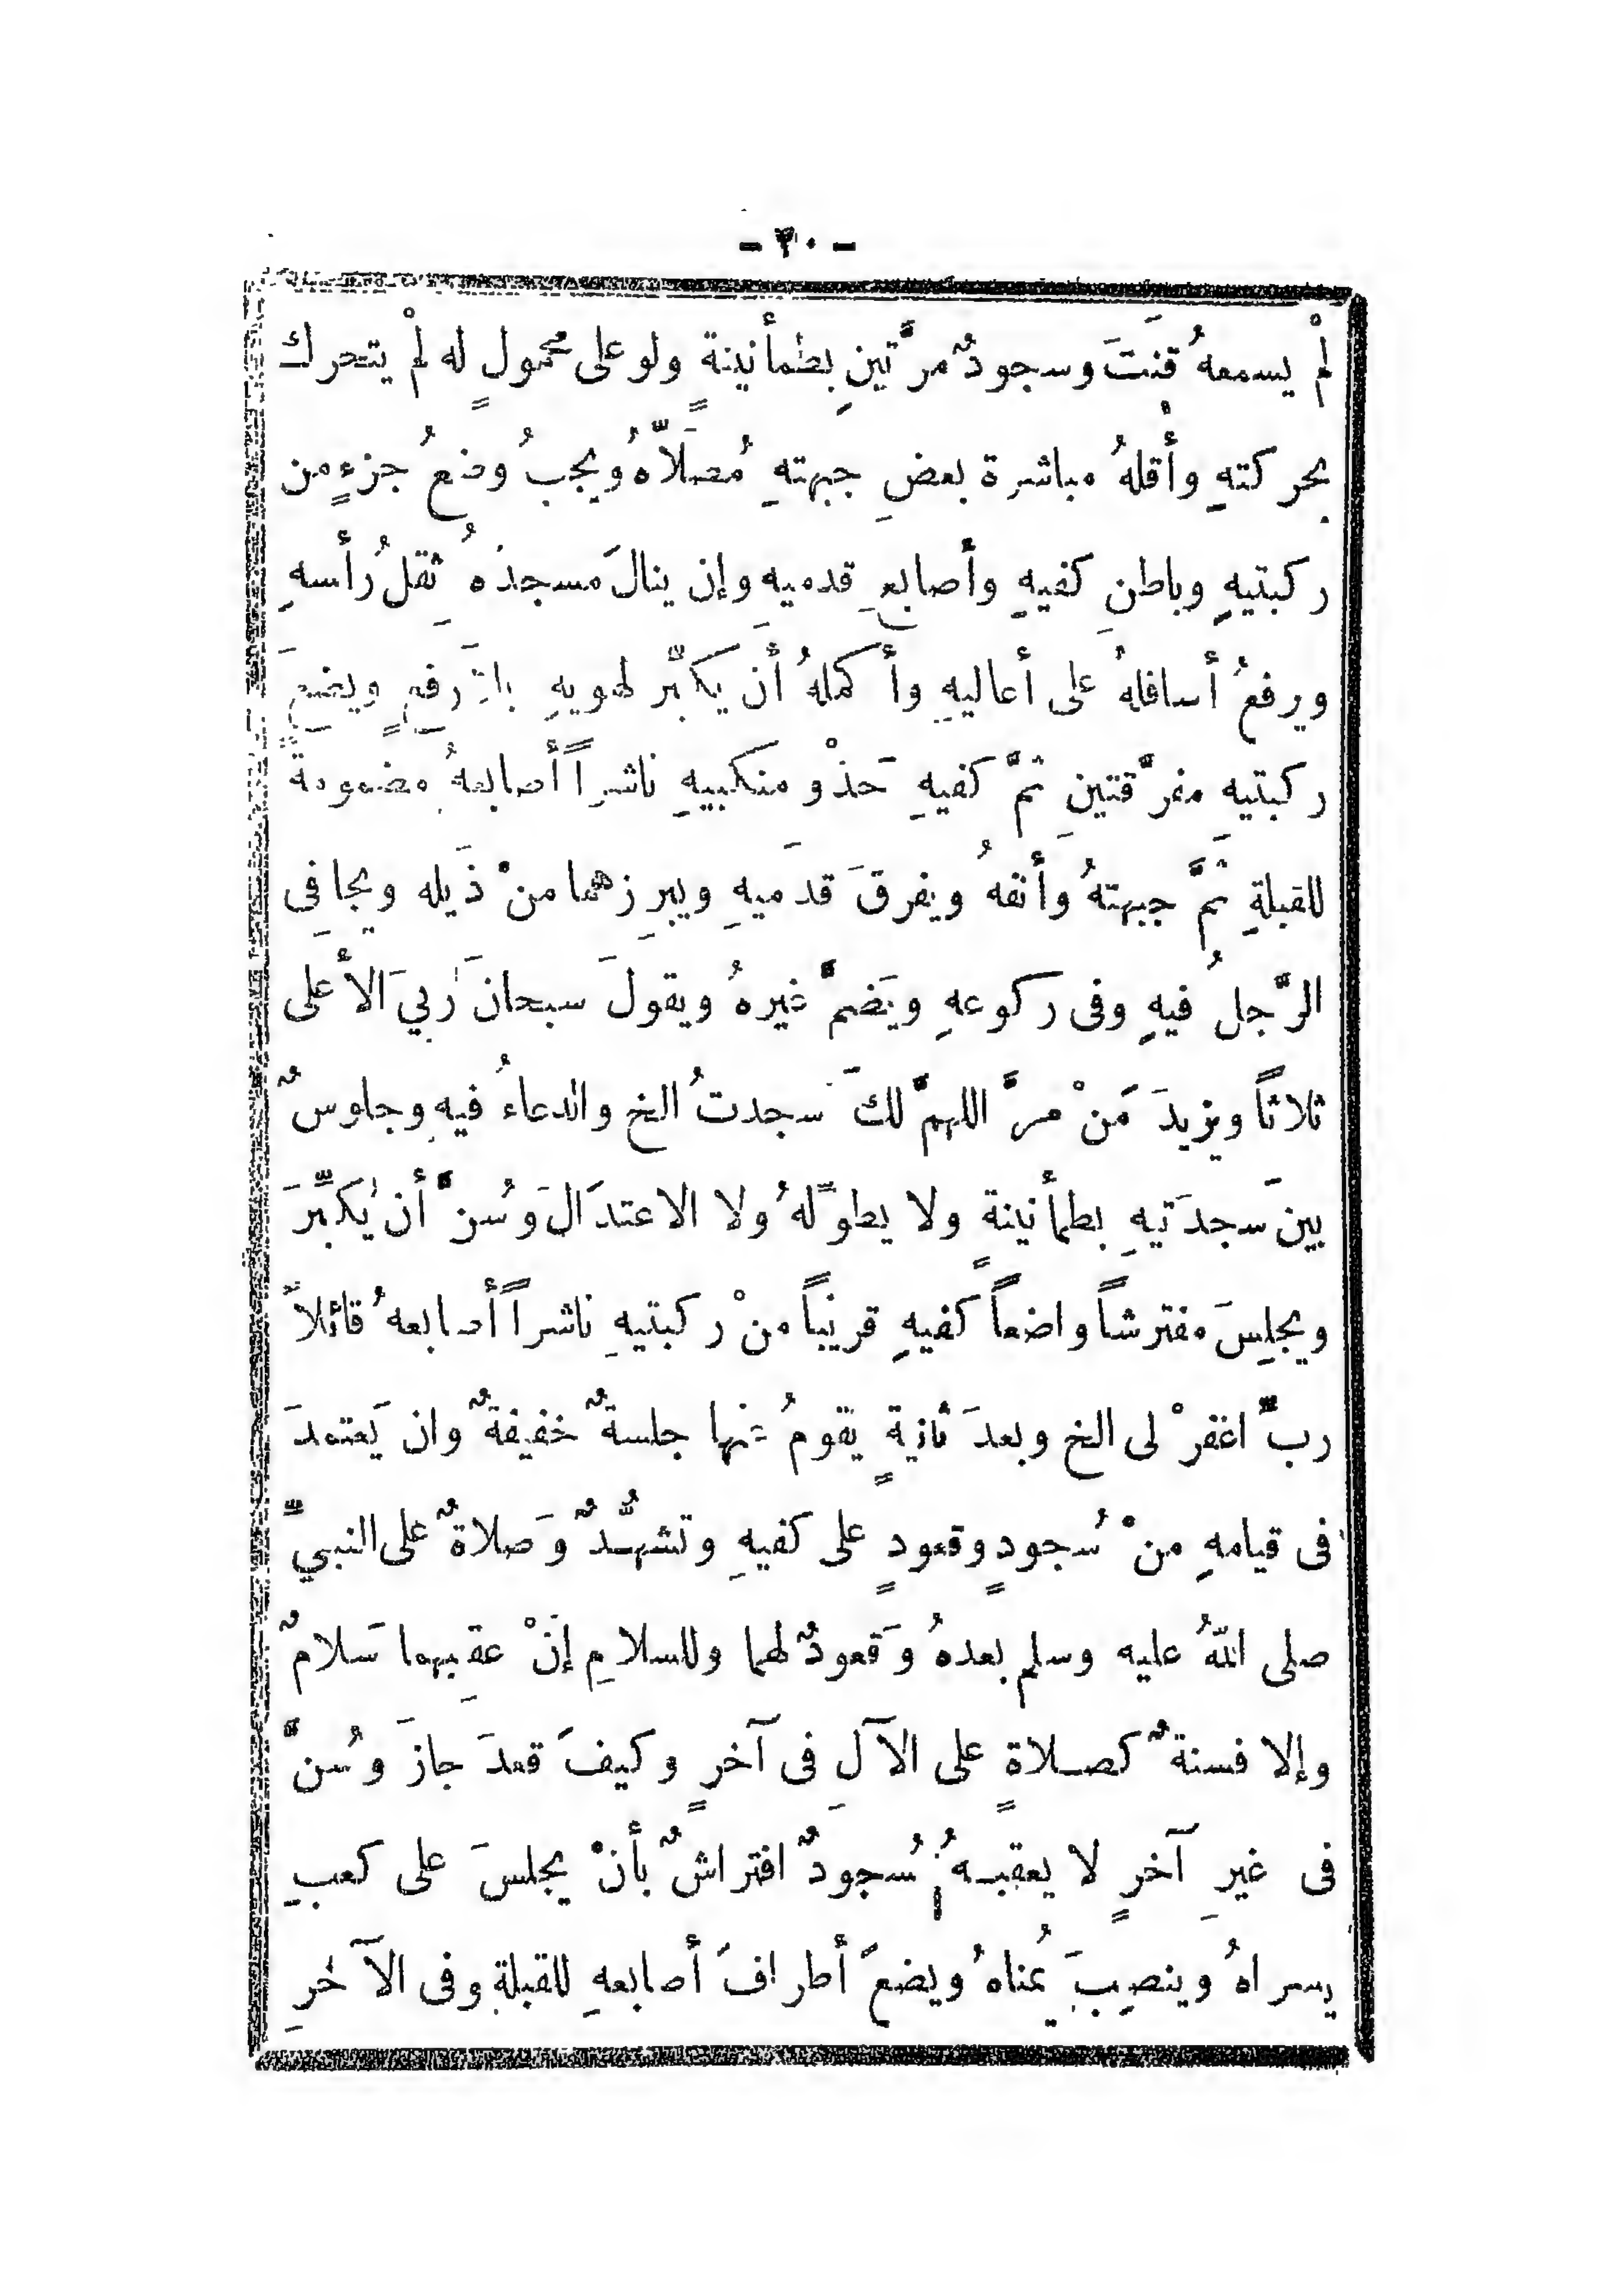 - ٣٠ -
لمْ يسمعهُ قنتَ وسجودٌ مرَّتينِ بطمأنينةٍ ولو على محمولٍ له لمْ يتحرك
بحركتهِ وأقلهُ مباشرة بعضِ جبهتهِ مُصلَّاهُ ويجبُ وضعُ جزءٍ من
ركبتيهِ وباطنِ كفيهِ وأصابعِ قدميهِ وإن ينالَ مسجدَهُ ثقلُ رأسهِ
ورفعُ أسافلهُ على أعاليهِ وأكملهُ أنَ يكبِّر لهويهِ بلا رفعٍ ويضعَ
ركبتيهِ مفرَّقتينِ ثمَّ كفيهِ حَذْو منكبيهِ ناشراً أصابعهُ مضمومةً
للقبلةِ ثمَّ جبهتهُ وأنفهُ ويفرقَ قدميهِ ويبرِزهما منْ ذَيله ويجافِى
الرَّجلُ فيهِ وفى ركوعهِ ويَضمَّ غيرهُ ويقولَ سبحانَ رَبيَ الأعلى
ثلاثاً ويزيدَ مَنْ مرَّ اللهمَّ لكَ سجدتُ الخ والدعاءُ فيهِ وجلوسٌ
بينَ سجدَتيهِ بطمأنينةٍ ولا يطوّلهُ ولا الاعتدَالَ وَسُنَّ أن يُكبِّرَ
ويجلِسَ مفترشاً واضعاً كفيهِ قريباً منْ ركبتيهِ ناشراً أصابعهُ قائلاً
ربِّ اغفرْ لى الخ وبعدَ ثانيةٍ يقومُ عنها جلسةٌ خفيفةٌ وان يَعتمدَ
فى قيامهِ منْ سُجودٍ وقعودٍ على كفيهِ وتشهُّدٌ وَصلاةٌ على النبيِّ
صلى اللهُ عليه وسلم بعدهُ وَقعودٌ لهما وللسلامِ إنْ عقِبهما سَلامٌ
وإلا فسنةٌ كصلاةٍ على الآلِ فى آخرٍ وكيفَ قعدَ جازَ وسُنَّ
فى غيرِ آخرٍ لا يعقبهُ سُجودٌ افتراشٌ بأنْ يجلسَ على كعبِ
يسراهُ وينصِبَ يُمناهُ ويضعَ أطرافَ أصابعهِ للقبلةِ وفى الآخرِ